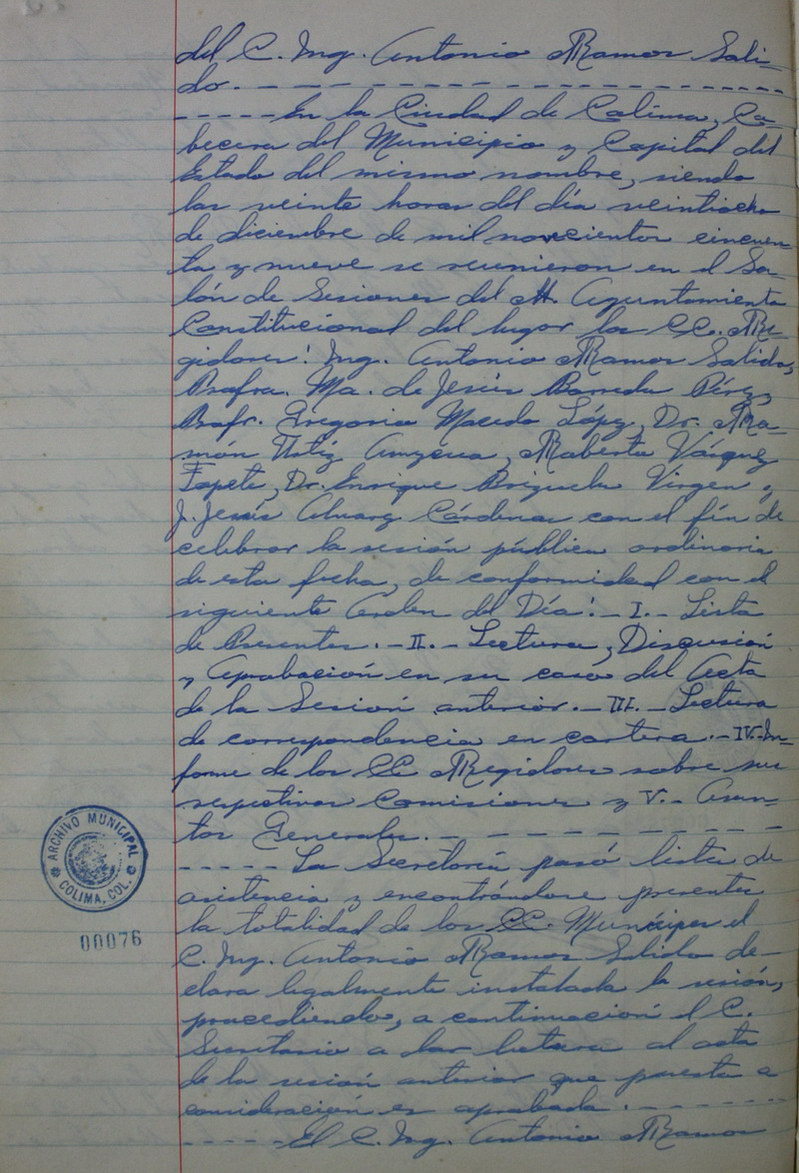 del C. Ing. Antonio Ramos Sali-
do. - - - - - - - - - - - - - - - - - -
- - - - - En la Ciudad de Colima, Ca-
becera del Municipio y Capital del
Estado del mismo nombre, siendo
las veinte horas del día veintiocho
de diciembre de mil novecientos cincuen-
ta y nueve se reunieron en el Sa-
lón de Sesiones del H. Ayuntamiento
Constitucional del lugar los CC. Re-
gidores: Ing. Antonio Ramos Salido,
Profra. Ma. de Jesús Barreda Pérez,
Profr. Gregorio Macedo López, Dr. Ra-
món Amezcua, Roberto Vázquez
Tapete, Dr. Enrique Brizuela Virgen y
J. Jesús Alvarez Cárdenas con el fín de
celebrar la sesión pública ordinaria
de esta fecha, de conformidad con el
siguiente Orden del Día: - I.- Lista
de Presentes. - II. - Lectura, Discusión
y Aprobación en su caso del Acta
de la Sesión anterior. - III. - Lectura
de correspondencia en cartera. - IV.- In-
forme de los CC Regidores sobre sus
respectivas Comisiones y V. - Asun-
tos Generales. - - - - - - - - - -
- - - - - La Secretaría pasó lista de
asistencia y encontrándose presentes
la totalidad de los CC. Munícipes el
C. Ing. Antonio Ramos Salido de-
clara legalmente instalada la sesión,
procediendo, a continuación el C.
Secretario a dar lectura al acta
de la sesión anterior que puesta a
consideración es aprobada. - - - - - -
- - - - - El C. Ing. Antonio Ramos
ARCHIVO MUNICIPAL
COLIMA, COL.
00076